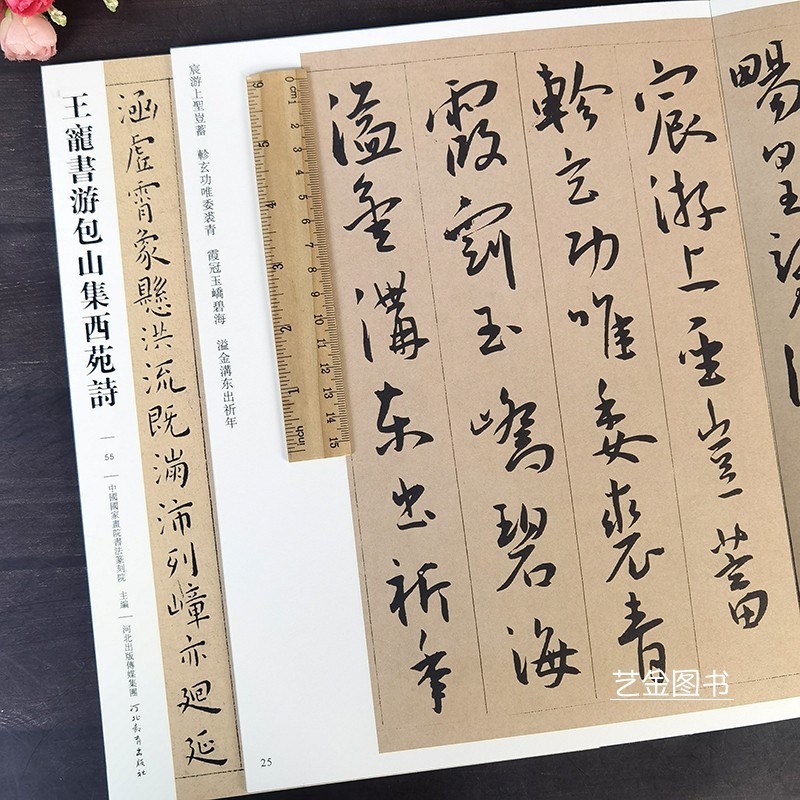 王寵書游包山集西苑詩
55
中國國家畫院書法篆刻院 主編
河北出版傳媒集團
河北教育出版社
涵虛霄象懸洪流既滿沛列嶂亦廻延
宸游上聖豈蓄 軫玄功唯委裘青 霞冠玉嶠碧海 溢金溝东出祈年
宸游上聖豈蓄
軫玄功唯委裘青
霞冠玉嶠碧海
溢金溝东出祈年
25
0 cm 1 2 3 4 5 6 7 8 9 10 11 12 13 14 15
inch 1 2 3 4 5 6
艺金图书